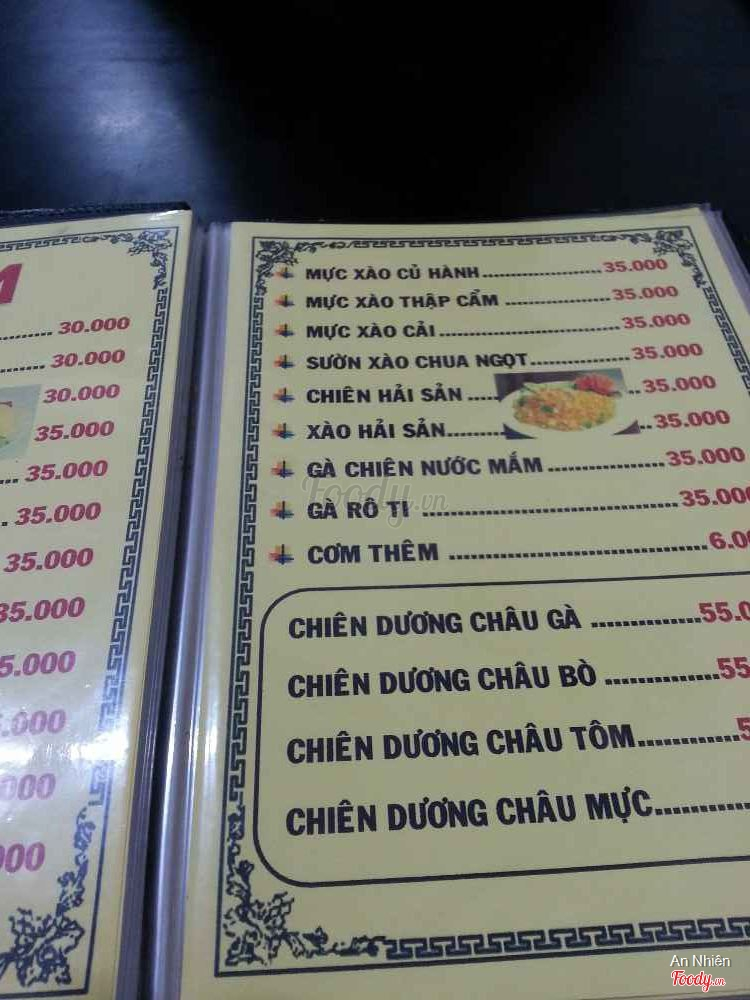 30.000
30.000
30.000
35.000
35.000
35.000
35.000
35.000
MỰC XÀO CỦ HÀNH 35.000
MỰC XÀO THẬP CẨM 35.000
MỰC XÀO CẢI 35.000
SƯỜN XÀO CHUA NGỌT 35.000
CHIÊN HẢI SẢN 35.000
XÀO HẢI SẢN 35.000
GÀ CHIÊN NƯỚC MẮM 35.000
GÀ RÔ TI 35.000
CƠM THÊM
CHIÊN DƯƠNG CHÂU GÀ
CHIÊN DƯƠNG CHÂU BÒ
CHIÊN DƯƠNG CHÂU TÔM
CHIÊN DƯƠNG CHÂU MỰC
Foody.vn
An Nhiên
Foody.vn